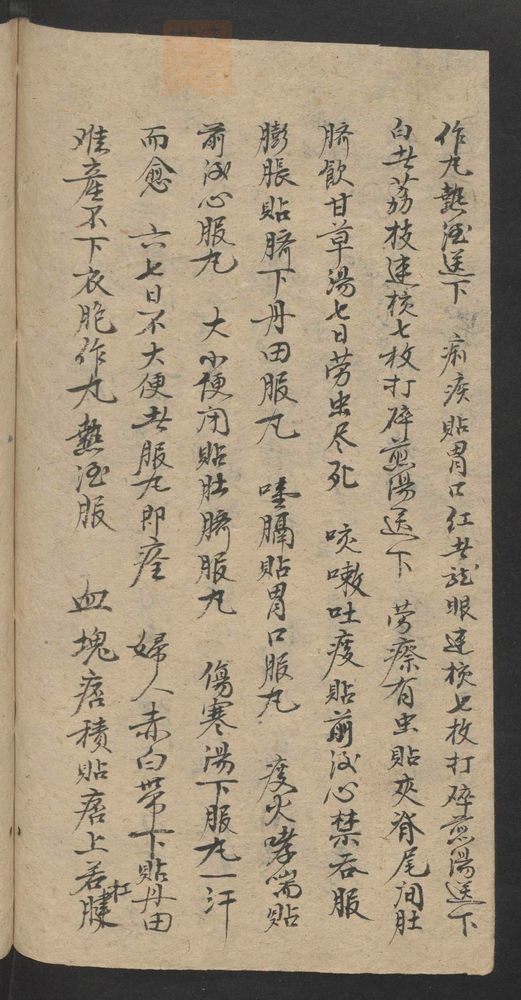 作丸熱酒送下　痢疾貼胃口紅者龍眼連核七枚打碎煎湯送下
白者荔枝連核七枚打碎煎湯送下　劳瘵有虫貼夾脊尾闾肚
臍飲甘草湯七日劳虫尽死　咳嗽吐痰貼前後心禁吞服
膨脹貼臍下丹田服丸　噎膈貼胃口服丸　痰火哮喘貼
前後心服丸　大小便闭貼肚臍服丸　傷寒湯下服丸一汗
而愈　六七日不大便者服丸即痊　婦人赤白带下貼丹田
难產不下衣胞作丸熱酒服　血塊痞積貼痞上若